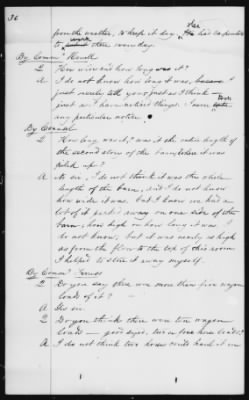 36
from the weather, to keep it dry. She had carpenters
to work there every day.
By Comr Howell
Q How wide and how long was it?
A I do not know how long it was,
just merely tell you just as I think
just as I have noticed things. I never took
any particular notice.
By Counsel
Q How long was it; was it the entire depth of
the second story of the barn when it was
piled up?
A No sir, I do not think it was the whole
length of the barn, and I do not know
how wide it was, but I know we had a
lot of it packed away on one side of the
barn; how high on how long it was I
do not know, but it was nearly as high
as from the floor to the top of this room
I helped to stow it away myself.
By Comr Ferriss
Q Do you say there were more than five wagon
loads of it?
A Yes sir.
Q Do you think there were ten wagon
loads — good sized, two or two horse loads?
A I do not think two horses could back it in